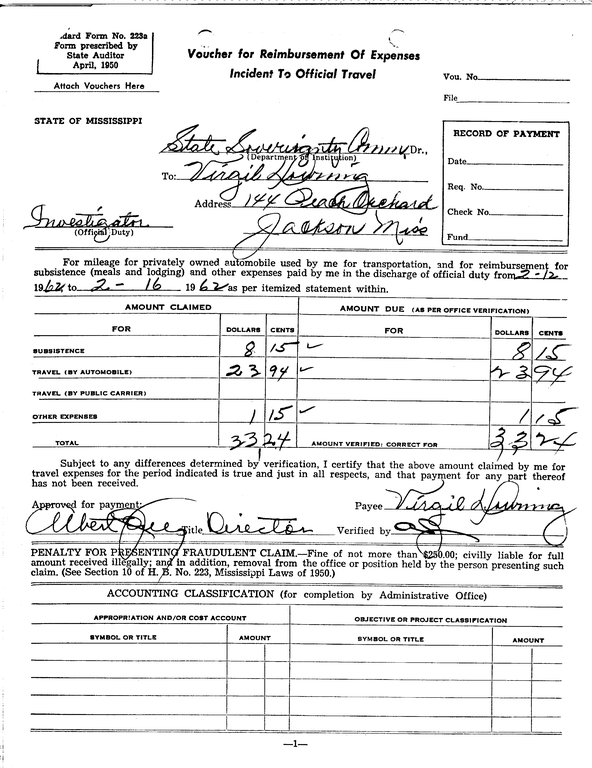 dard Form No. 223a
Form prescribed by
State Auditor
April, 1950
Attach Vouchers Here
Voucher for Reimbursement Of Expenses
Incident To Official Travel
Vou. No.
File
STATE OF MISSISSIPPI
RECORD OF PAYMENT
Date
Req. No.
Check No.
Fund
State Sovereignty Comm Dr.,
(Department or Institution)
To: Virgil Downing
Address 144 Peach Orchard
Jackson Miss
Investigator
(Official Duty)
For mileage for privately owned automobile used by me for transportation, and for reimbursement for
subsistence (meals and lodging) and other expenses paid by me in the discharge of official duty from 2-12
1962 to 2-16 1962 as per itemized statement within.
AMOUNT CLAIMED AMOUNT DUE (AS PER OFFICE VERIFICATION)
FOR DOLLARS CENTS FOR DOLLARS CENTS
SUBSISTENCE 8 15 ✓ 8 15
TRAVEL (BY AUTOMOBILE) 23 94 ✓ 23 94
TRAVEL (BY PUBLIC CARRIER)
OTHER EXPENSES 1 15 ✓ 1 15
TOTAL 33 24 AMOUNT VERIFIED: CORRECT FOR 33 24
Subject to any differences determined by verification, I certify that the above amount claimed by me for
travel expenses for the period indicated is true and just in all respects, and that payment for any part thereof
has not been received.
Approved for payment: Payee Virgil Downing
Albert Title Director Verified by
PENALTY FOR PRESENTING FRAUDULENT CLAIM.—Fine of not more than $250.00; civilly liable for full
amount received illegally; and in addition, removal from the office or position held by the person presenting such
claim. (See Section 10 of H. B. No. 223, Mississippi Laws of 1950.)
ACCOUNTING CLASSIFICATION (for completion by Administrative Office)
APPROPRIATION AND/OR COST ACCOUNT OBJECTIVE OR PROJECT CLASSIFICATION
SYMBOL OR TITLE AMOUNT SYMBOL OR TITLE AMOUNT
—1—